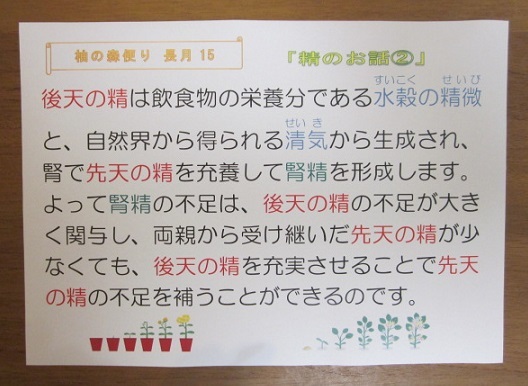 柚の森便り 長月15
「精のお話②」
すいこく せいび
後天の精は飲食物の栄養分である水穀の精微
せい き
と、自然界から得られる清気から生成され、
腎で先天の精を充養して腎精を形成します。
よって腎精の不足は、後天の精の不足が大き
く関与し、両親から受け継いだ先天の精が少
なくても、後天の精を充実させることで先天
の精の不足を補うことができるのです。